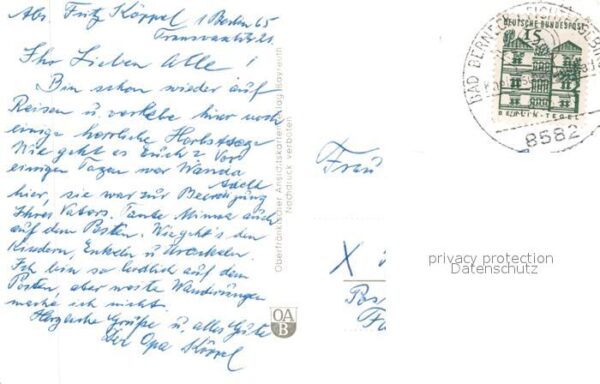 Abs. Fritz Köppel, 1 Berlin 65
Transvaalstr. 21
Ihr Lieben Alle!
Bin schon wieder auf
Reisen u. verlebe hier noch
einige herrliche Herbsttage
Wie geht es Euch? Vor
einigen Tagen war Wanda
Adell
hier, sie war zur Beerdigung
Ihres Vaters. Tante Minna auch
auf dem Posten. Wie geht's den
Kindern, Enkeln u.
Ich bin so leidlich auf dem
Posten, aber weite Wanderungen
mache ich nicht.
Herzliche Grüße u. alles Gute
Opa Köppel
Oberfränkischer Ansichtskartenverlag Bayreuth
Nachdruck verboten
OA
B
DEUTSCHE BUNDESPOST
15
BERLIN-TEGEL
BAD BERNECK FICHTELGEBIRGE
8582
Frau
X
Pos
privacy protection
Datenschutz